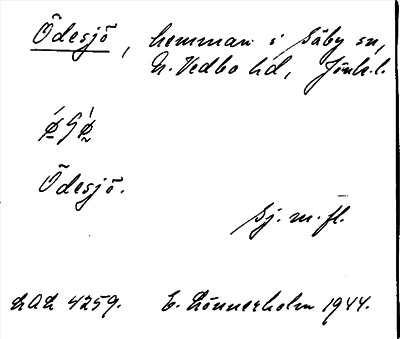 Ödesjö, hemman i Säby sn,
N. Vedbo hd, Jönk. l.
Ödesjö.
Sj. m. fl.
LAL 4259. E. Lönnerholm 1944.